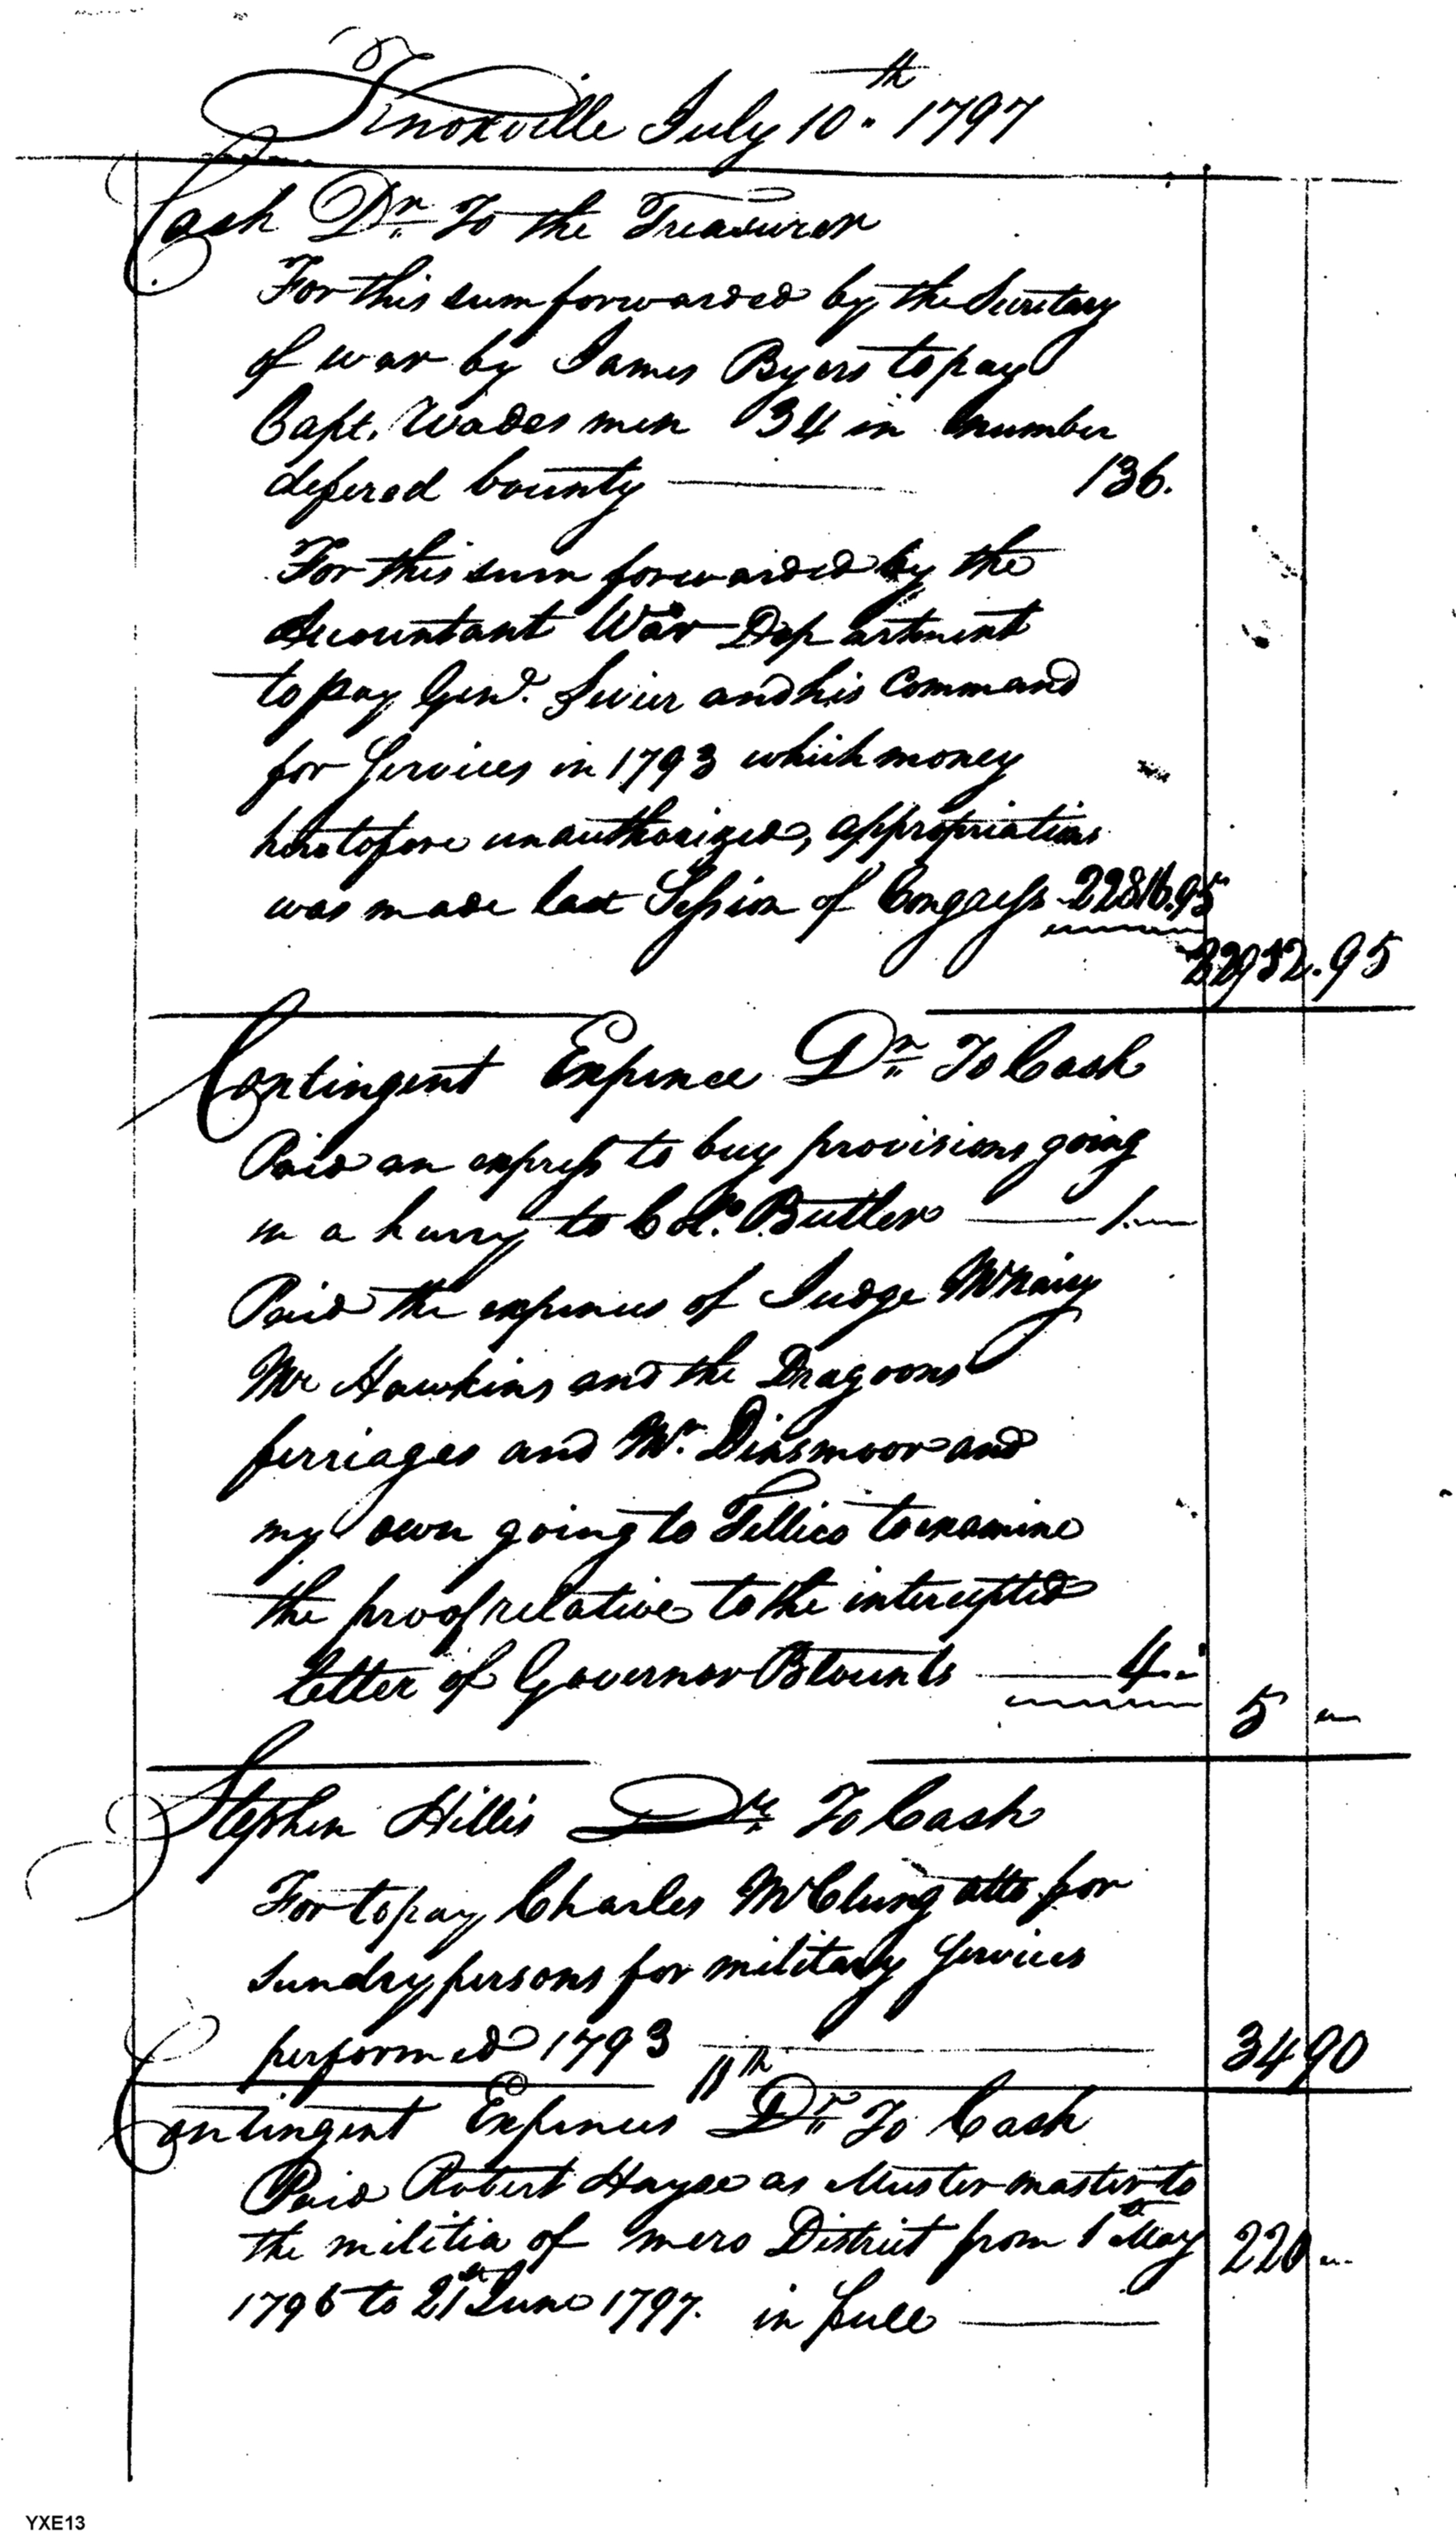 Knoxville July 10th 1797
Cash Dr. To the Treasurer
For this sum forwarded by the Secretary
of war by James Byers to pay
Capt. Wades men 34 in number
defered bounty 136.
For this sum forwarded by the
Accountant War Department
to pay Genl. Sevier and his Command
for Services in 1793 which money
heretofore unauthorized, appropriations
was made last Session of Congress 22816.95
22952.95
Contingent Expence Dr. To Cash
Paid an express to buy provisions going
in a hurry to Col. Butler 1.
Paid the expences of Judge McNairy
Mr Hawkins and the Dragoons
ferriages and Mr. Dinsmoor and
my own going to Tellico to examine
the proof relative to the intercepted
letter of Governor Blounts 4.
5
Stephen Hillis Dr. To Cash
For to pay Charles McClung atto for
sundry persons for military Services
performed 1793 3490
11th
Contingent Expences Dr. To Cash
Paid Robert Hayse as Muster master to
the militia of mero District from 1st May 220
1796 to 21st June 1797. in full
YXE13